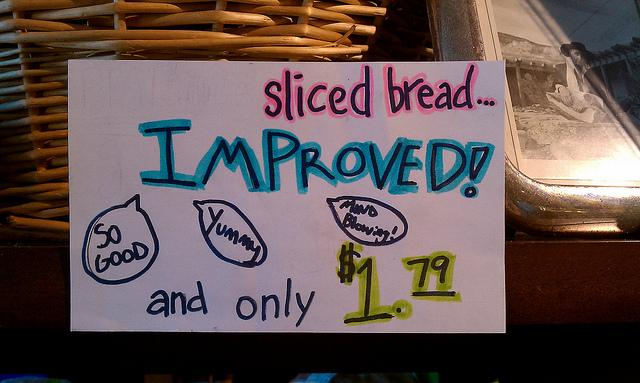 sliced bread...
IMPROVED!
SO
GOOD
Yummy
MIND
Blowing!
and only $1.79